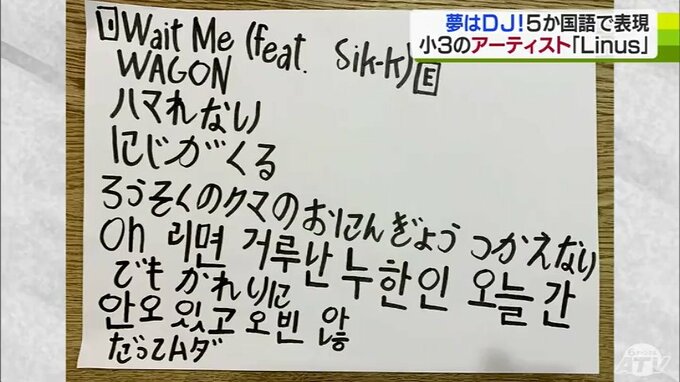 夢はDJ!5か国語で表現
小3のアーティスト「Linus」
Wait Me (feat. Sik-k) E
WAGON
ハマれない
にじがくる
ろうそくのクマのおにんぎょう つかえない
Oh 리면 거루난 누한인 오늘 간
でも かれりに
안오 있고 오빈 않
だってムダ
ATV